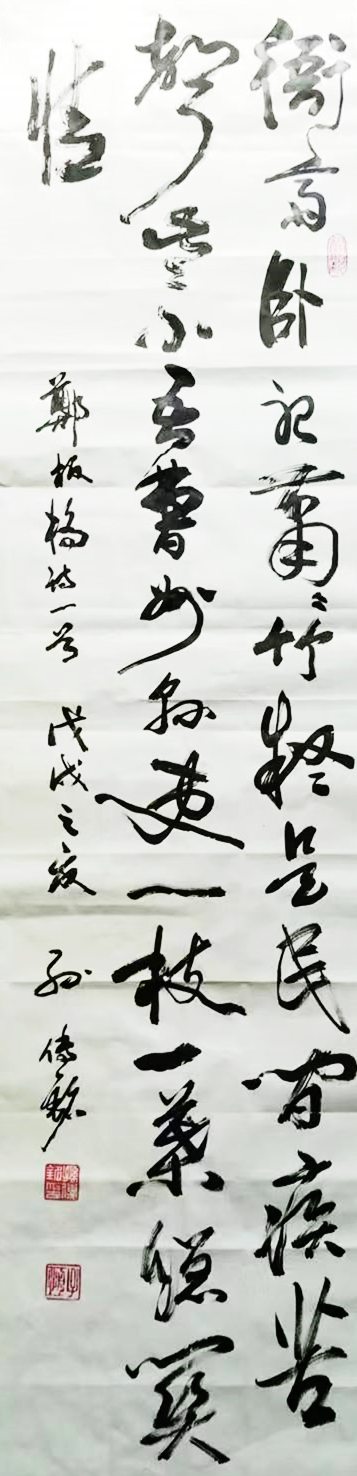 衙斋卧听萧〻竹疑是民间疾苦
声些小吾曹州县吏一枝一叶总关
情
郑板桥诗一首 戊戌之夏 孙传